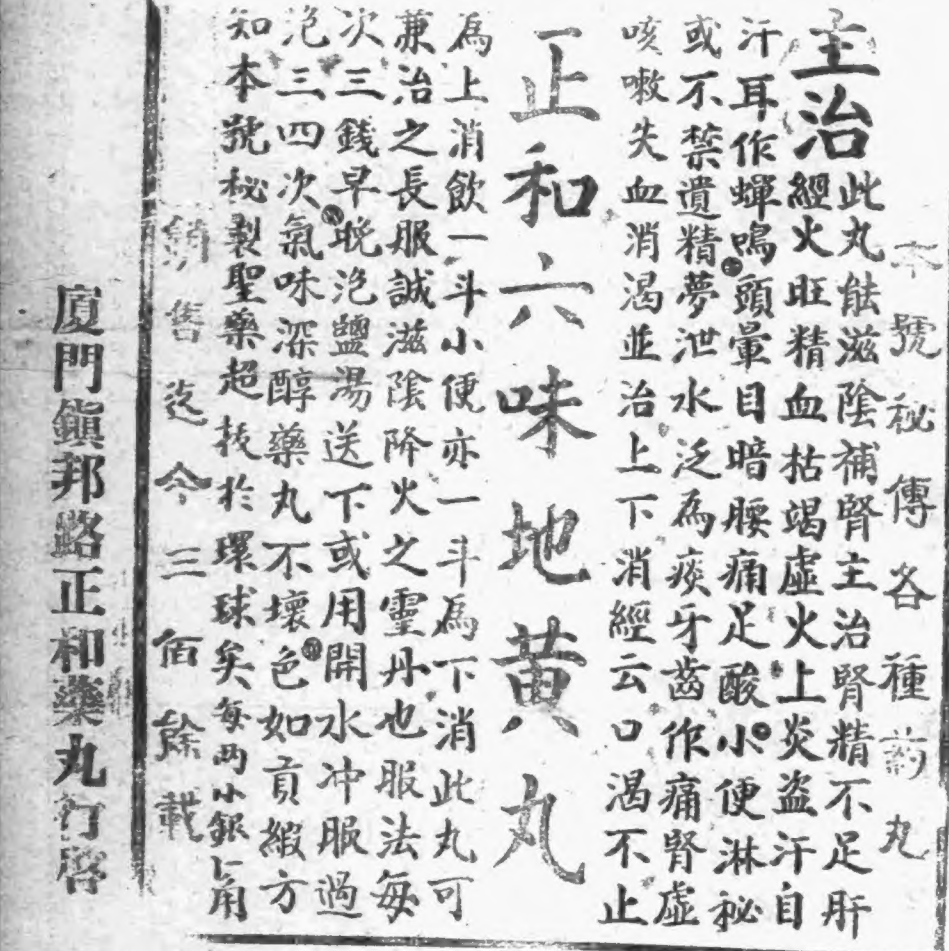 本號秘傳各種葯丸
主治此丸能滋陰補腎主治腎精不足肝
經火旺精血枯竭虛火上炎盗汗自
汗耳作蟬鳴頭暈目暗腰痛足酸小便淋秘
或不禁遺精夢泄水泛為痰牙齒作痛腎虛
咳嗽失血消渴並治上下消經云口渴不止
正和六味地黃丸
為上消飲一斗小便亦一斗為下消此丸可
兼治之長服誠滋陰降火之靈丹也服法每
次三錢早晚泡鹽湯送下或用開水冲服過
泡三四次氣味深醇藥丸不壞色如貢緞方
知本號秘製聖藥超拔於環球矣每両小銀角
銷售迄今三佰餘載
廈門鎮邦路正和藥丸行啓